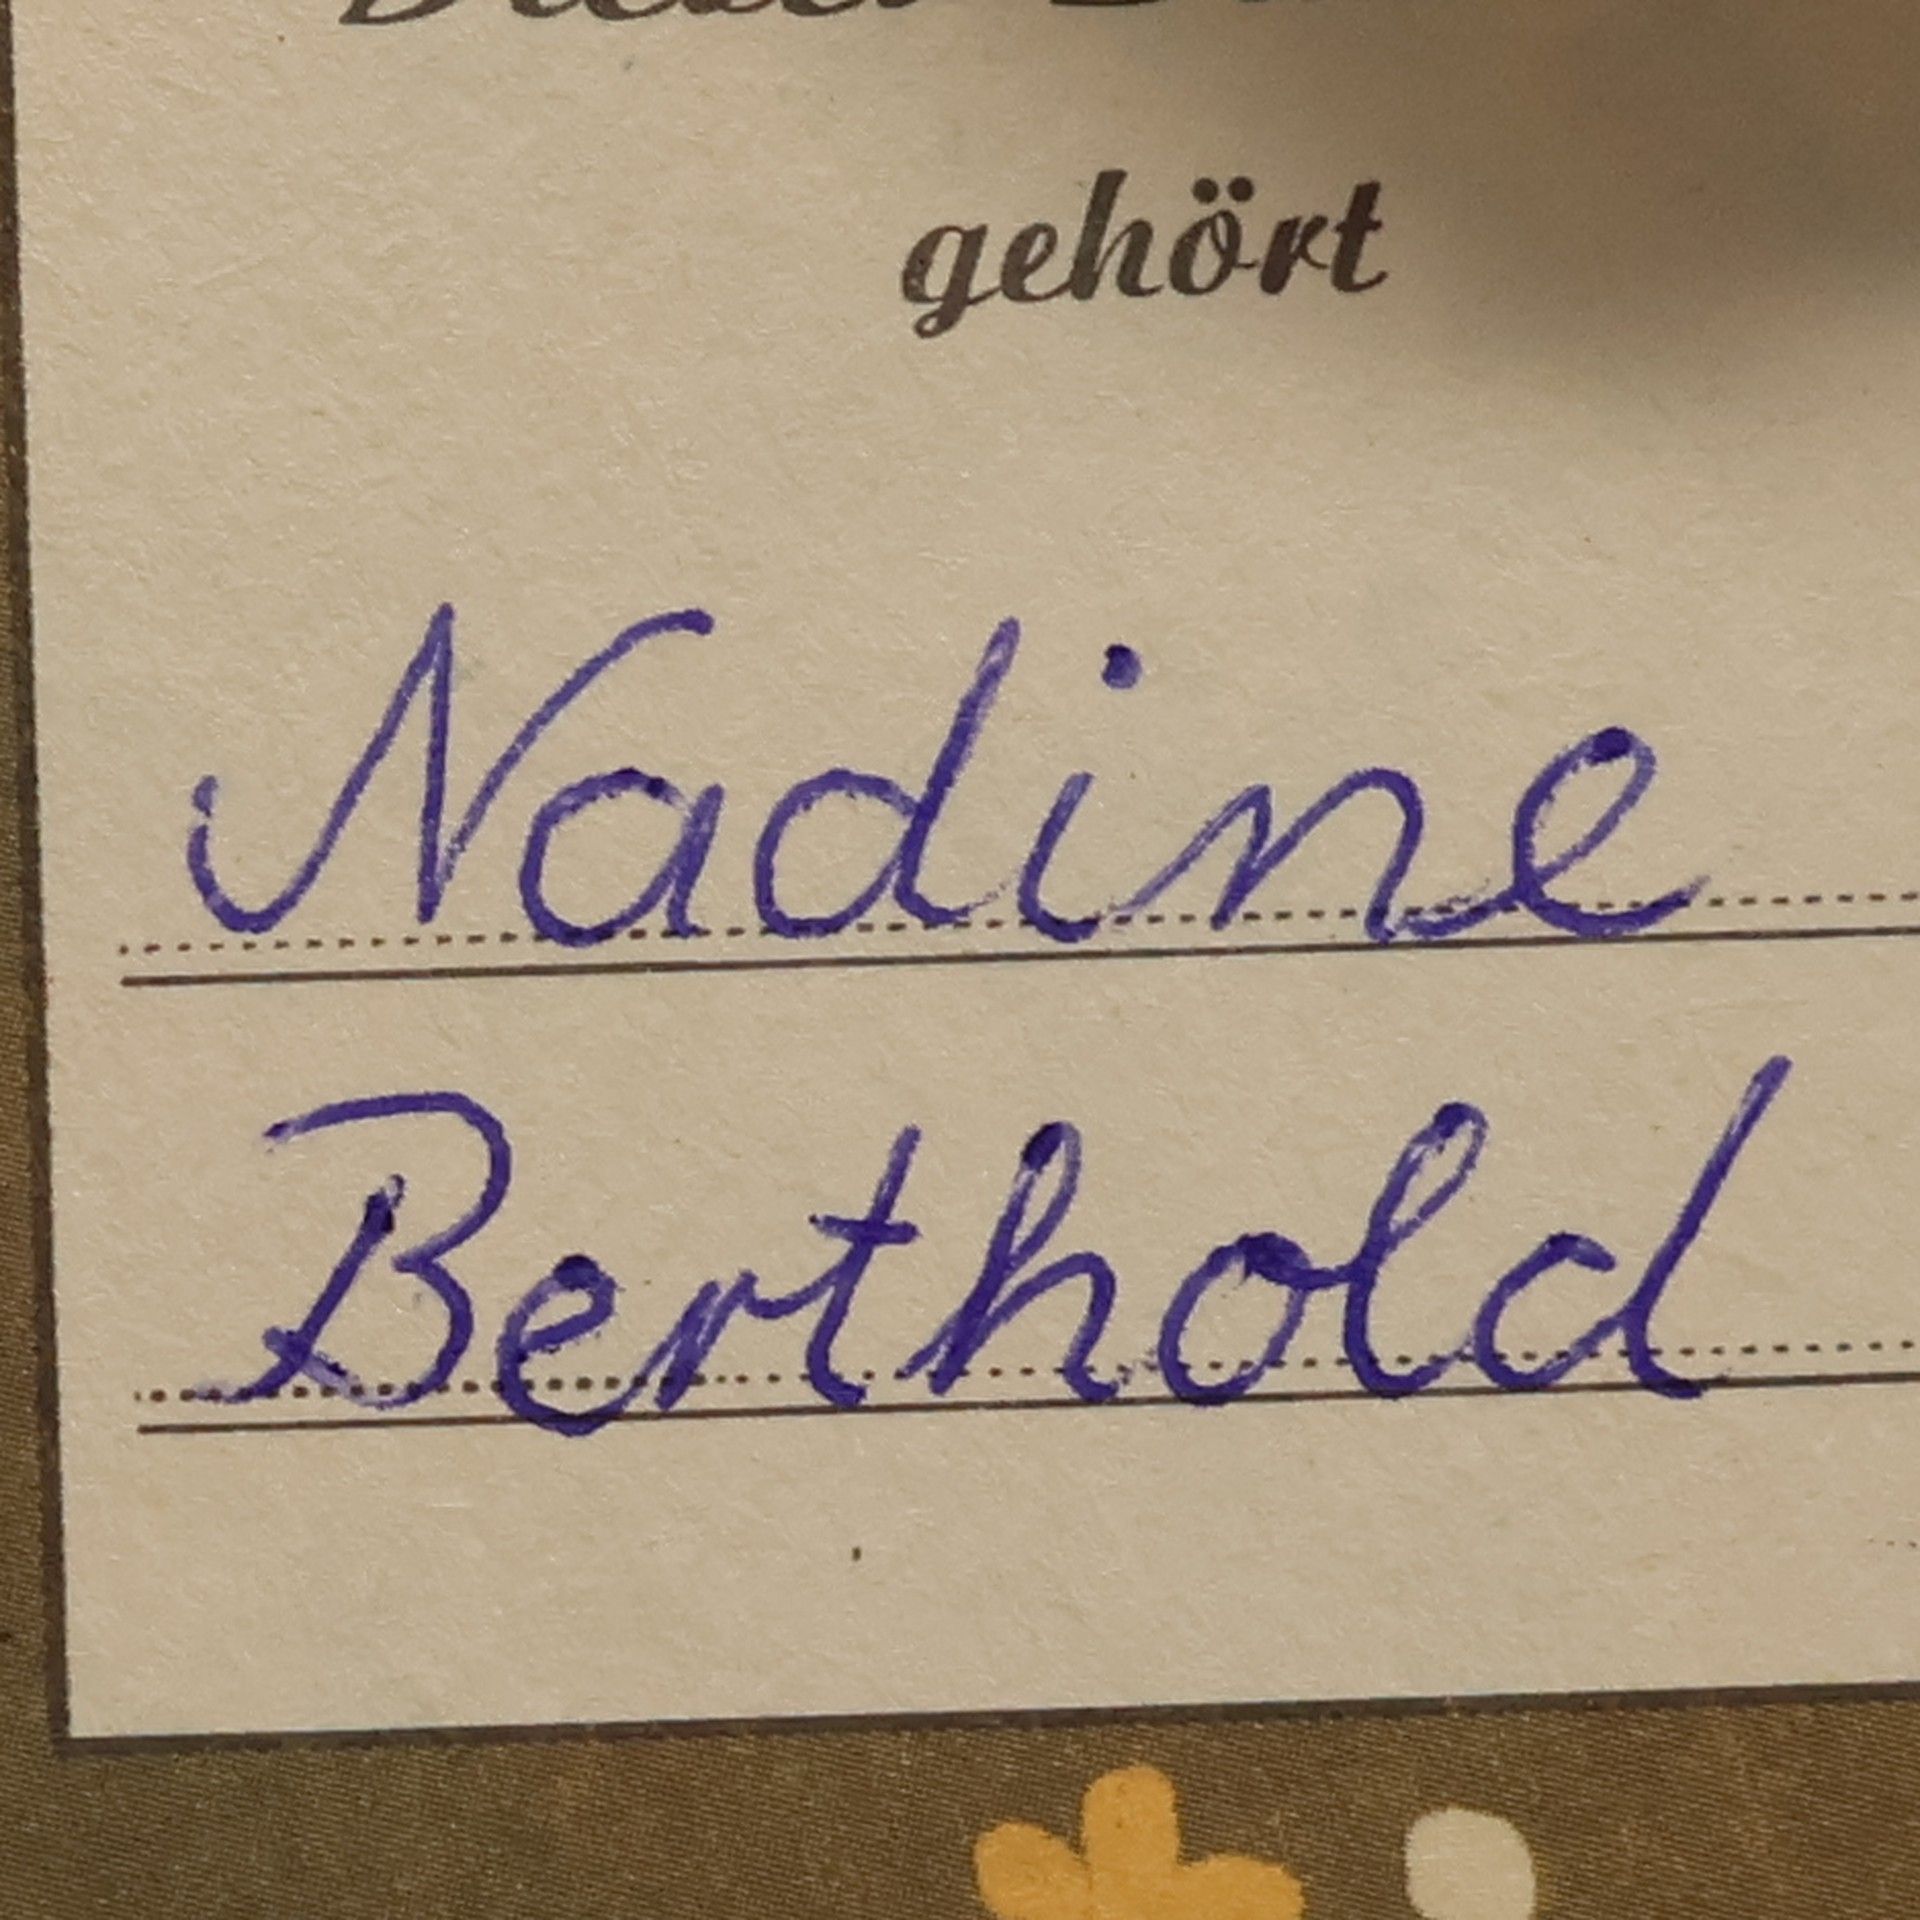 gehört
Nadine
Berthold